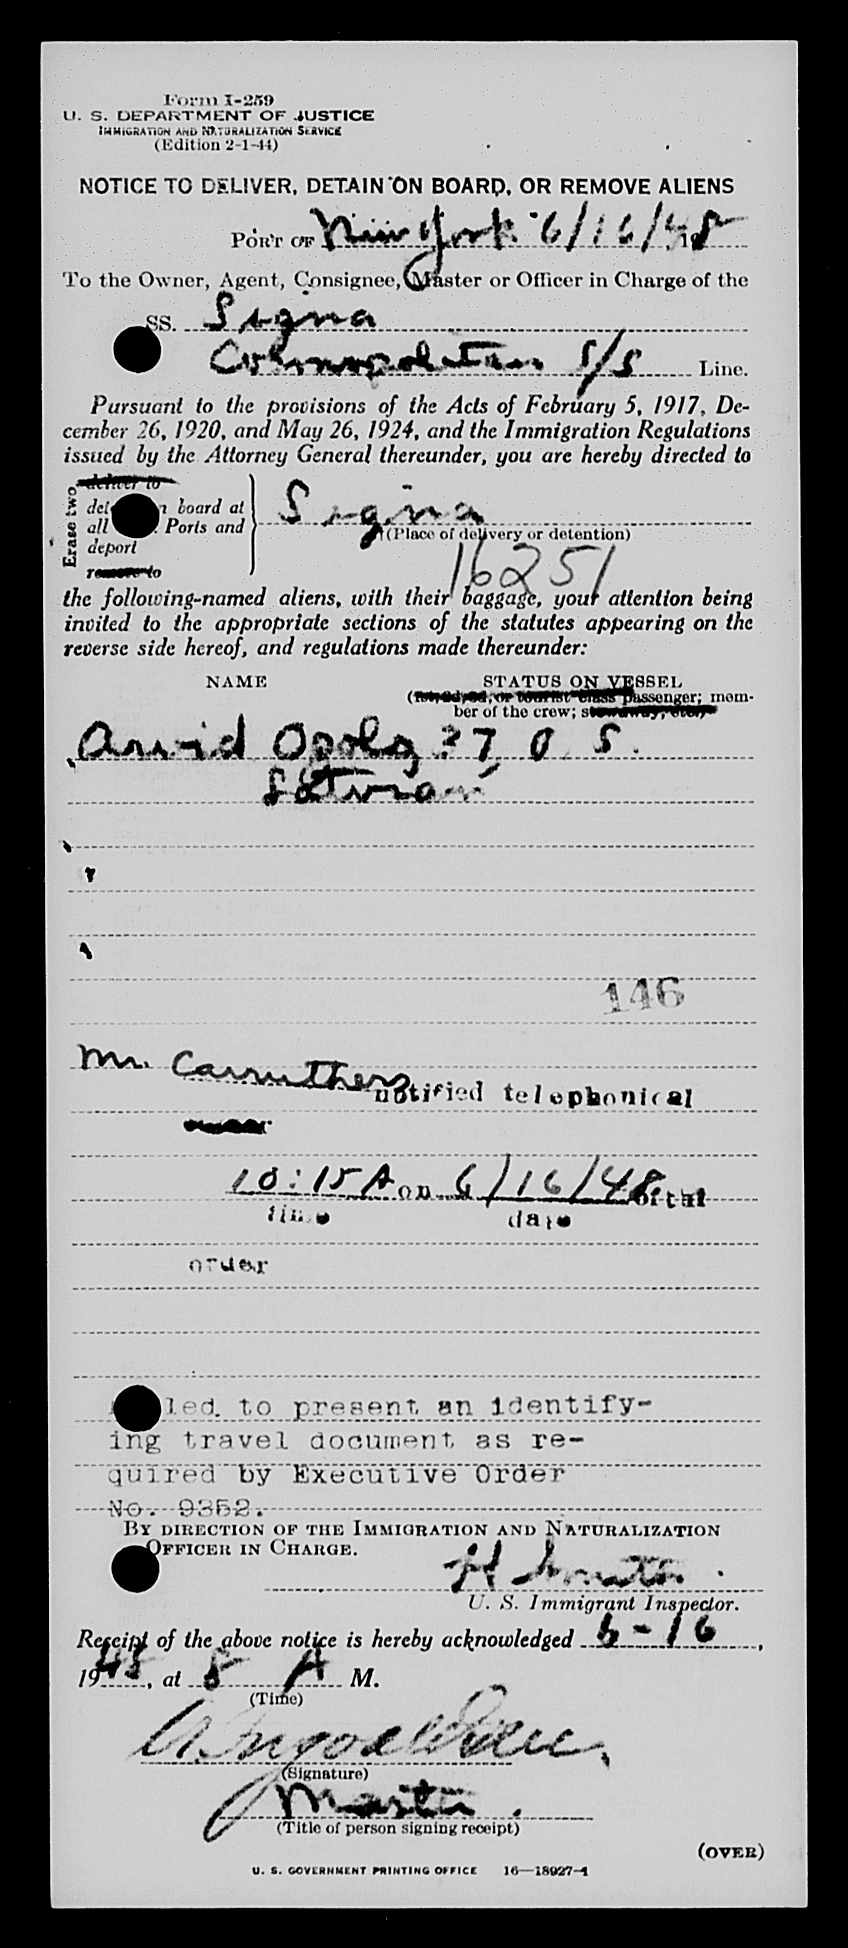 Form I-259
U. S. DEPARTMENT OF JUSTICE
IMMIGRATION AND NATURALIZATION SERVICE
(Edition 2-1-44)
NOTICE TO DELIVER, DETAIN ON BOARD, OR REMOVE ALIENS
PORT OF New York 6/16/48
To the Owner, Agent, Consignee, Master or Officer in Charge of the
SS. Signa
Cosmopolitan S/S Line.
Pursuant to the provisions of the Acts of February 5, 1917, De-
cember 26, 1920, and May 26, 1924, and the Immigration Regulations
issued by the Attorney General thereunder, you are hereby directed to
Erase two
deliver to
board at
all Ports and
deport
remove to
Signa
(Place of delivery or detention)
16251
the following-named aliens, with their baggage, your attention being
invited to the appropriate sections of the statutes appearing on the
reverse side hereof, and regulations made thereunder:
NAME STATUS ON VESSEL
passenger; mem-
ber of the crew; stowaway, etc.)
Arvid Opolg 27 O S.
Latvian
146
Mr. Carruthers notified telephonical
10:15 A on 6/16/48 of that
time date
order
to present an identify-
ing travel document as re-
quired by Executive Order
No. 9352.
BY DIRECTION OF THE IMMIGRATION AND NATURALIZATION
OFFICER IN CHARGE.
H
U. S. Immigrant Inspector.
Receipt of the above notice is hereby acknowledged 6-16,
1948, at 8 A M.
(Time)
(Signature)
Master.
(Title of person signing receipt)
(OVER)
U. S. GOVERNMENT PRINTING OFFICE 16—18927-1